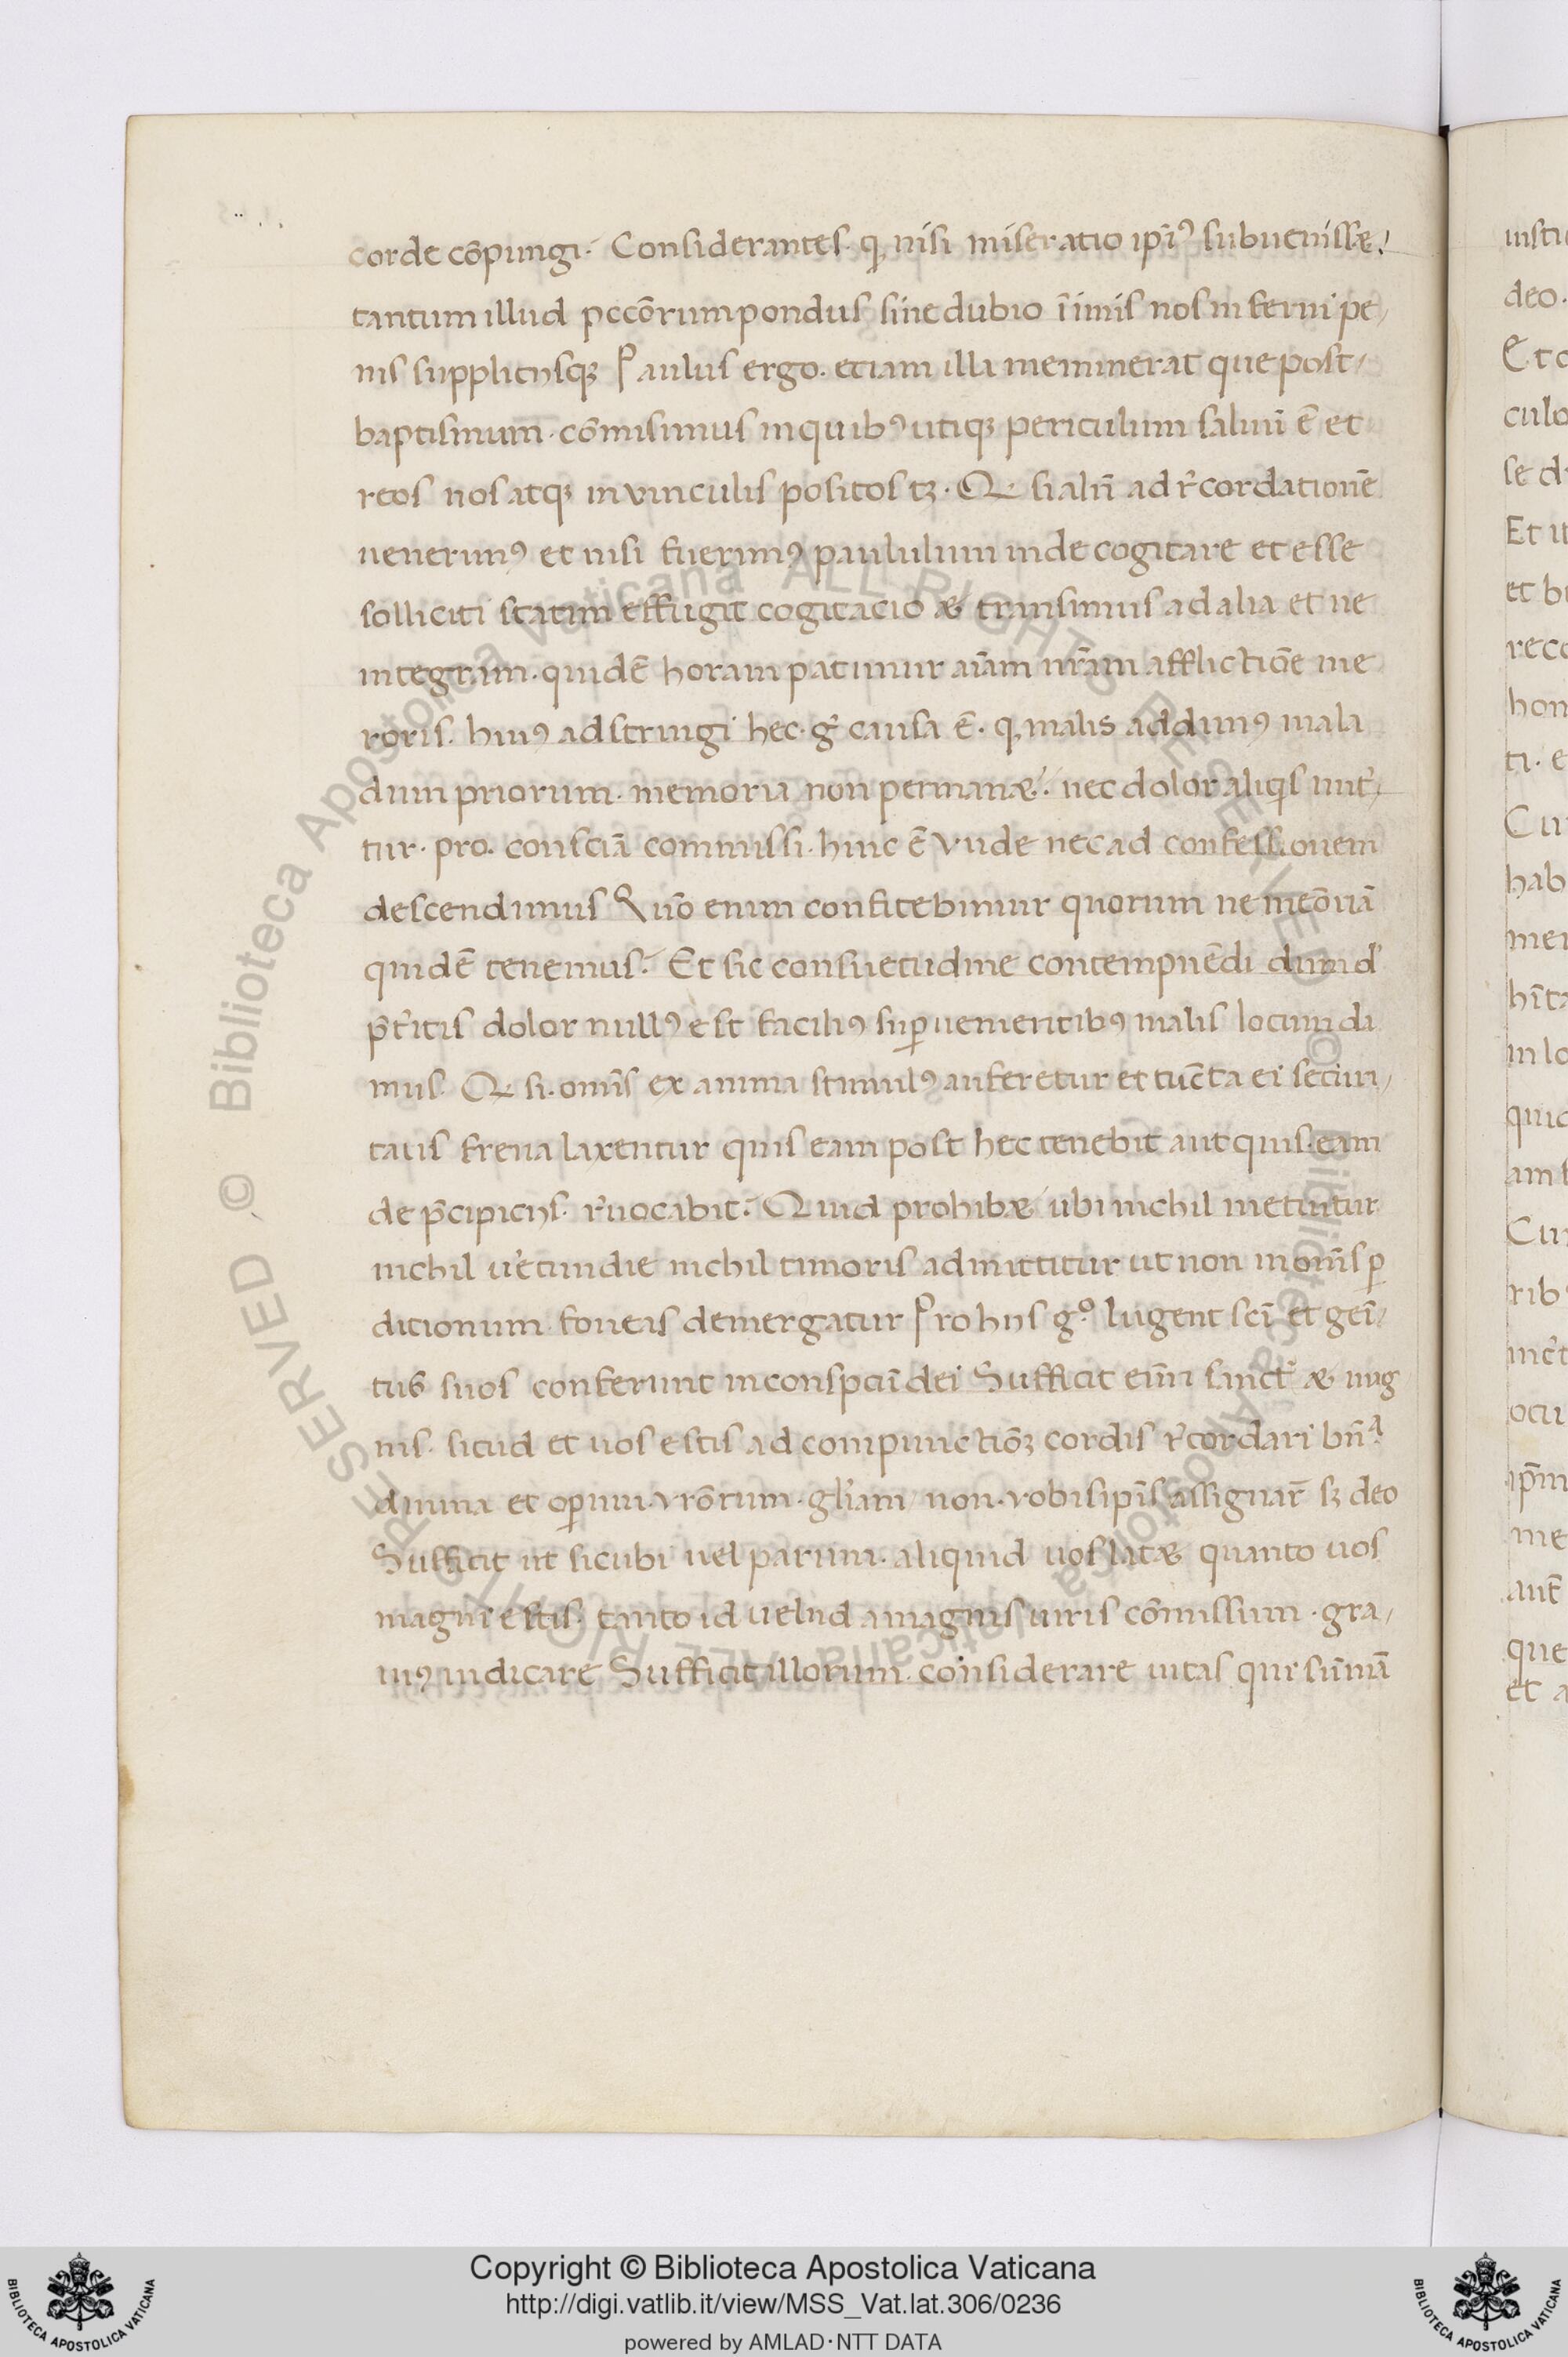 corde cōpungi· Considerantes· q̨ nisi miseratio ip̄iꝰ subuenissæ·
tantum illud pccōrum pondus sine dubio īimis nos inferni pe/
nis suppliciisqȝ Paulus ergo· etiam illa meminerat que post/
baptismum· cōmisimus in quibꝰ utiqȝ periculum salutis ē et
reos nos atqȝ in vinculis positos tȝ· Q si alīī ad r̄cordationē
uenerimꝰ et nisi fuerimꝰ paululum inde cogitare et esse
solliciti statim effugit cogitacio æ transimus ad alia et ne
integram· quidē horam patimur aīam nr̄am afflictiōe me
roris· huiꝰ adstringi hec· gͥ causa ē· q̨ malis addimꝰ mala
dum priorum· memoria non permanæ· nec dolor aliqis init᷑/
tur· pro· consciā commissi· hinc ē vnde nec ad confessionem
descendimus Quō enim confitebimur quorum ne meōriā
quidē tenemus· Et sic consuetudine contempnēdi dum d᷑
p̄t᷑itis dolor nullꝰ est faciliꝰ suꝑuenientibꝰ malis locum da
mus· Q si· omīs ex anima stimulꝰ auferetur et cūcta ei secūri/
tatis frena laxentur quis eam post hec tenebit aut quis· eam
de p̄cipiciis· r᷑uocabit· Quid prohibæ ubi nichil metuitur
nichil ue᷑cundie nichil timoris admittitur ut non in omīs ꝑ
ditionum foueas demergatur Pro hiis gͦ· lugent scī et geī/
tus suos conferunt in conspcū dei Sufficit enīm sanct᷑ æ mag
nis· sicud et uos estis ad compunctiōȝ cordis r᷑cordari bn̄ᵃ
diuina et oꝑum· vrōrum· glīam non· vobis ip̄is assignar̄ sȝ deo
Sufficit ut sicubi uel parum· aliquid uos latæ quanto uos
magni estis· tanto id uelud a magnis uiris cōmissum· gra/
uiꝰ iudicare Sufficit illorum· considerare uitas qui sūmā